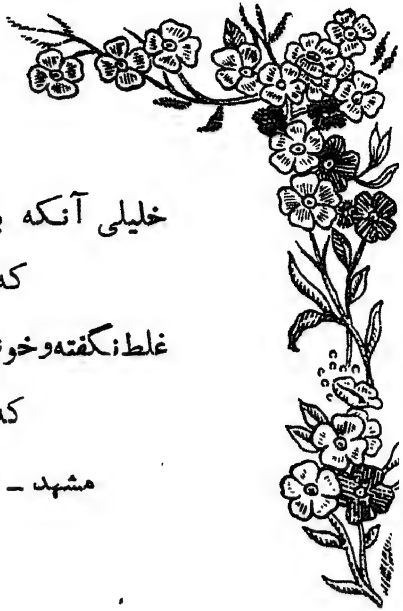 خلیلی آنکه
که
غلط نگفته و خو
که
مشهد ـ